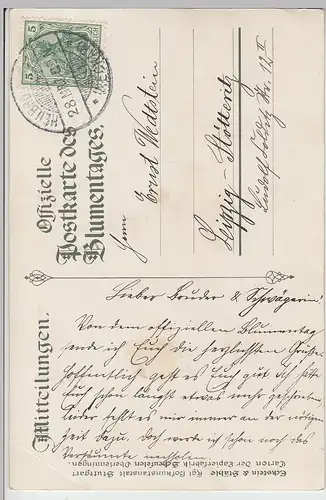 Offizielle
Postkarte des
Blumentages.
5
5
HEILBRONN
28
Herrn
Ernst Wettstein
Leipzig-Stötteritz
Ludolf Colditz Str. 12 II
Mitteilungen.
Lieber Bruder & Schwägerin!
Von dem offiziellen Blumentag
sende ich Euch die herzlichsten Grüße.
Hoffentlich geht es Euch gut. Ich hätte
Euch schon längst etwas mehr geschrieben
leider fehlt es mir immer an der nötigen
Zeit dazu, doch werde ich schon noch das
Versäumte nachholen.
Eckstein & Stähle Kgl. Hofkunstanstalt Stuttgart.
Carton der Papierfabrik Scheufelen Oberlenningen.